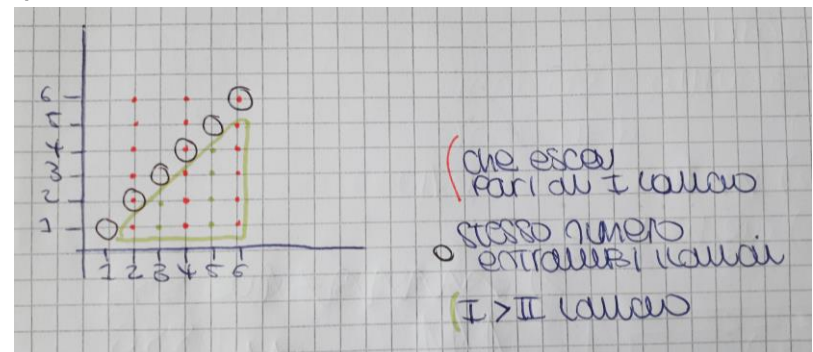 6
5
4
3
2
1
1 2 3 4 5 6
che esca
pari al I lancio
stesso numero
entrambi i lanci
I > II lancio